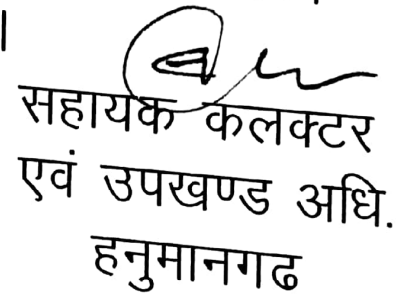 सहायक कलक्टर
एवं उपखण्ड अधि.
हनुमानगढ